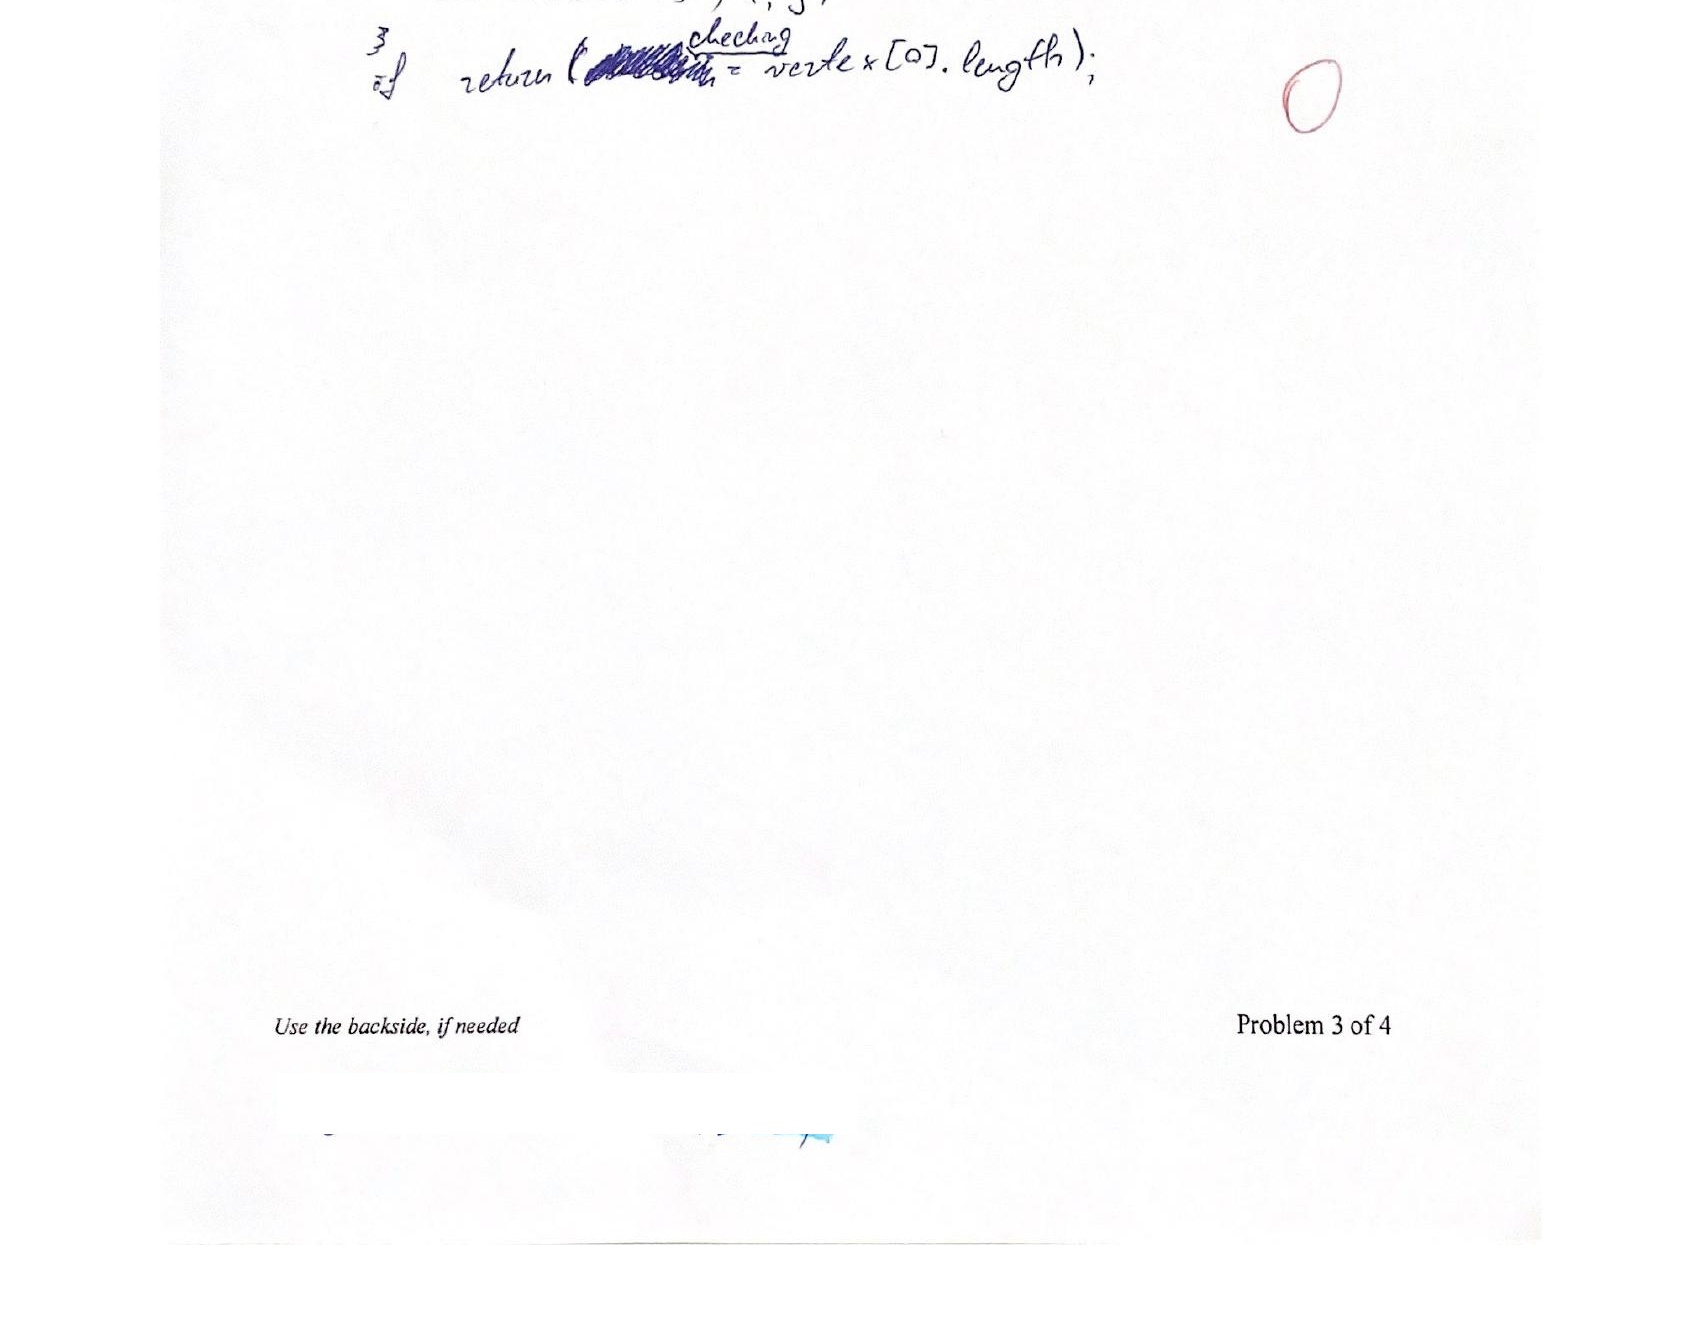 }
if return (checking = vertex[0].length);
0
Use the backside, if needed
Problem 3 of 4